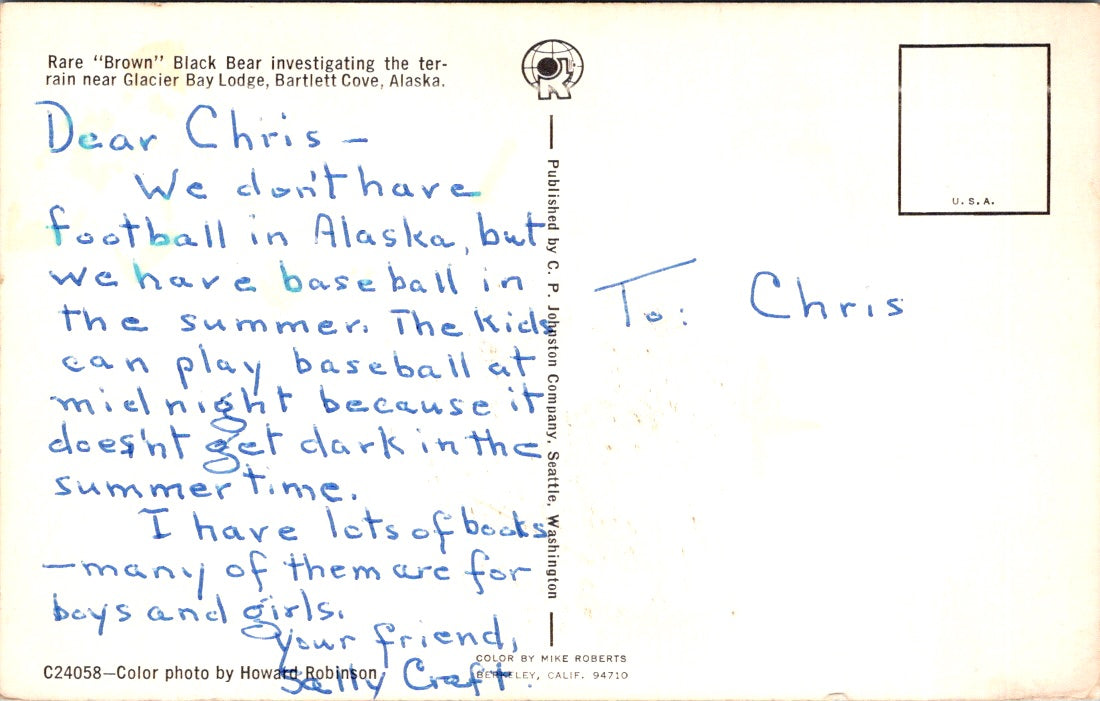 Rare "Brown" Black Bear investigating the ter-
rain near Glacier Bay Lodge, Bartlett Cove, Alaska.
Dear Chris –
We don't have
football in Alaska, but
we have baseball in
the summer. The kids
can play baseball at
midnight because it
does'nt get dark in the
summer time.
I have lots of books
—many of them are for
boys and girls.
Your friend,
Sally Craft.
C24058—Color photo by Howard Robinson
Published by C. P. Johnston Company, Seattle, Washington
COLOR BY MIKE ROBERTS
BERKELEY, CALIF. 94710
U.S.A.
To: Chris